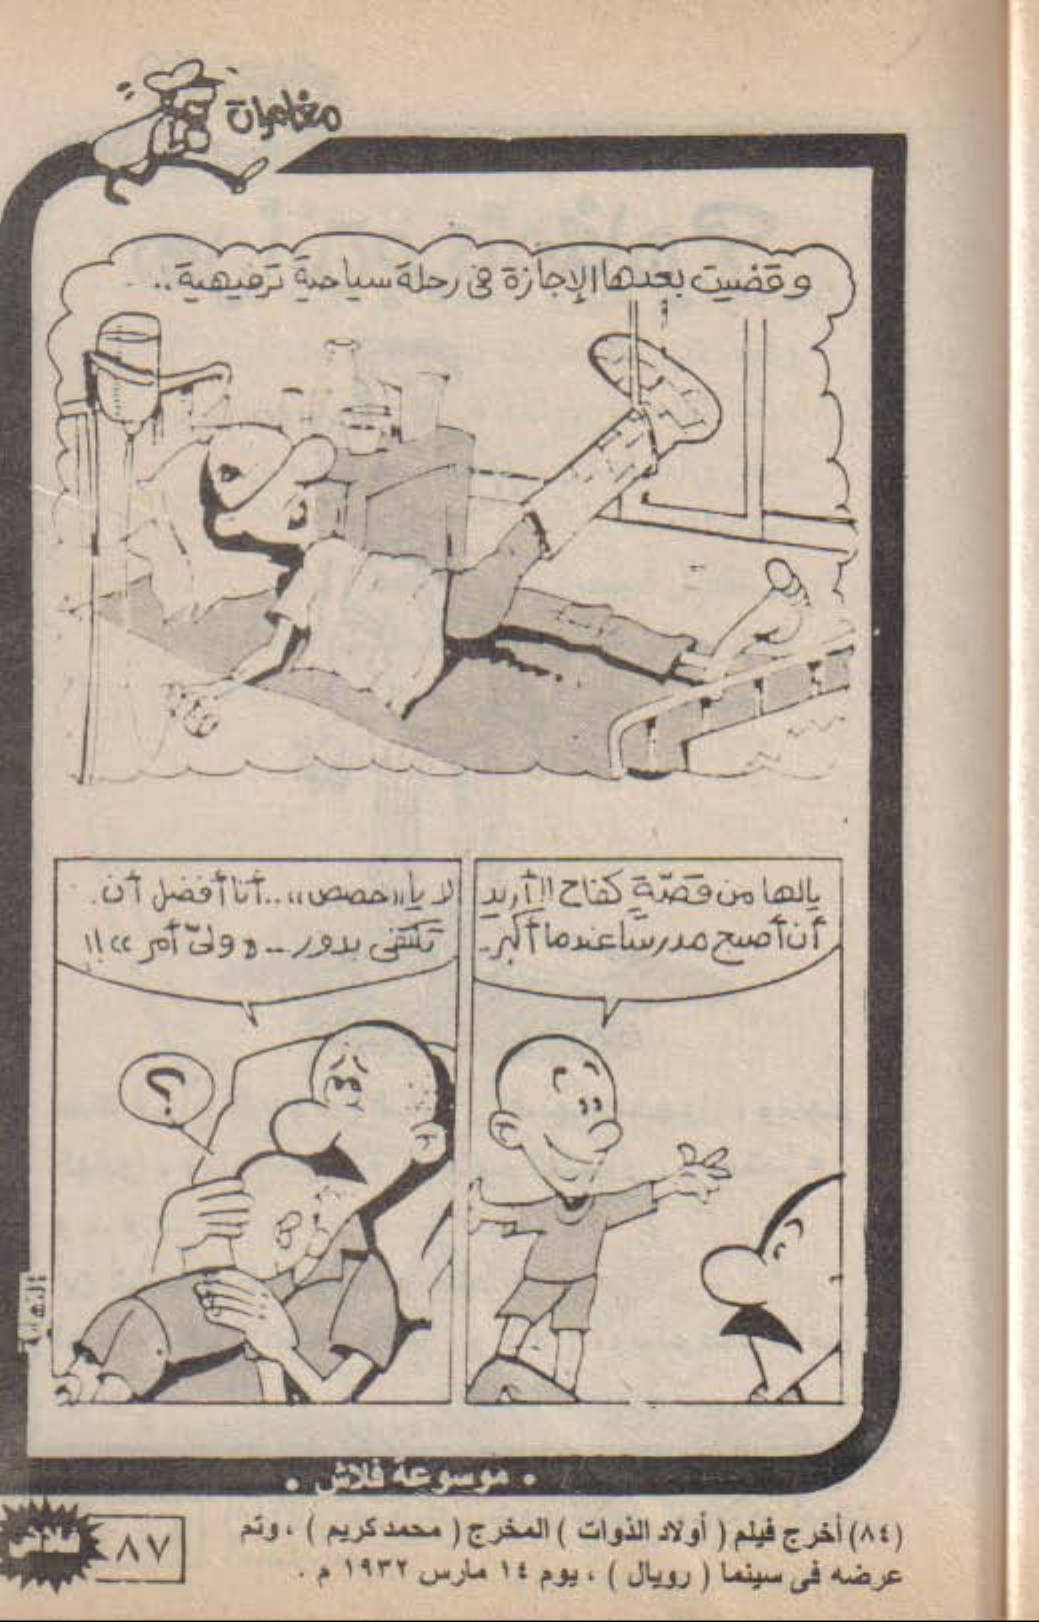 مغامرات
وقضيت بعدها الإجازة فى رحلة سياحية ترفيهية..
يالها من قصّة كفاح !! أريد
أن أصبح مدرسًا عندما أكبر..
لا يا «حصص»..أنا أفضل أن
تكتفى بدور -- «ولىّ أمر» !!
؟
النهاية
• موسوعة فلاش •
(٨٤) أخرج فيلم ( أولاد الذوات ) المخرج ( محمد كريم ) ، وتم
عرضه فى سينما ( رويال ) ، يوم ١٤ مارس ١٩٣٢ م .
٨٧
فلاش